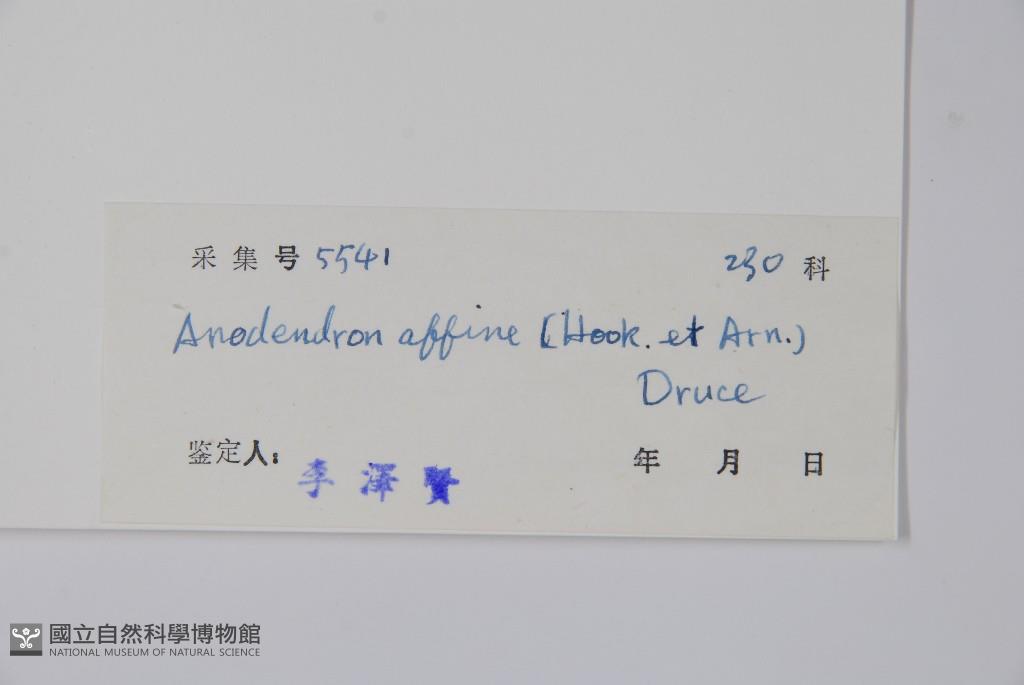 采集号 5541 230 科
Anodendron affine (Hook. et Arn.)
Druce
鉴定人: 李澤賢 年 月 日
國立自然科學博物館
NATIONAL MUSEUM OF NATURAL SCIENCE